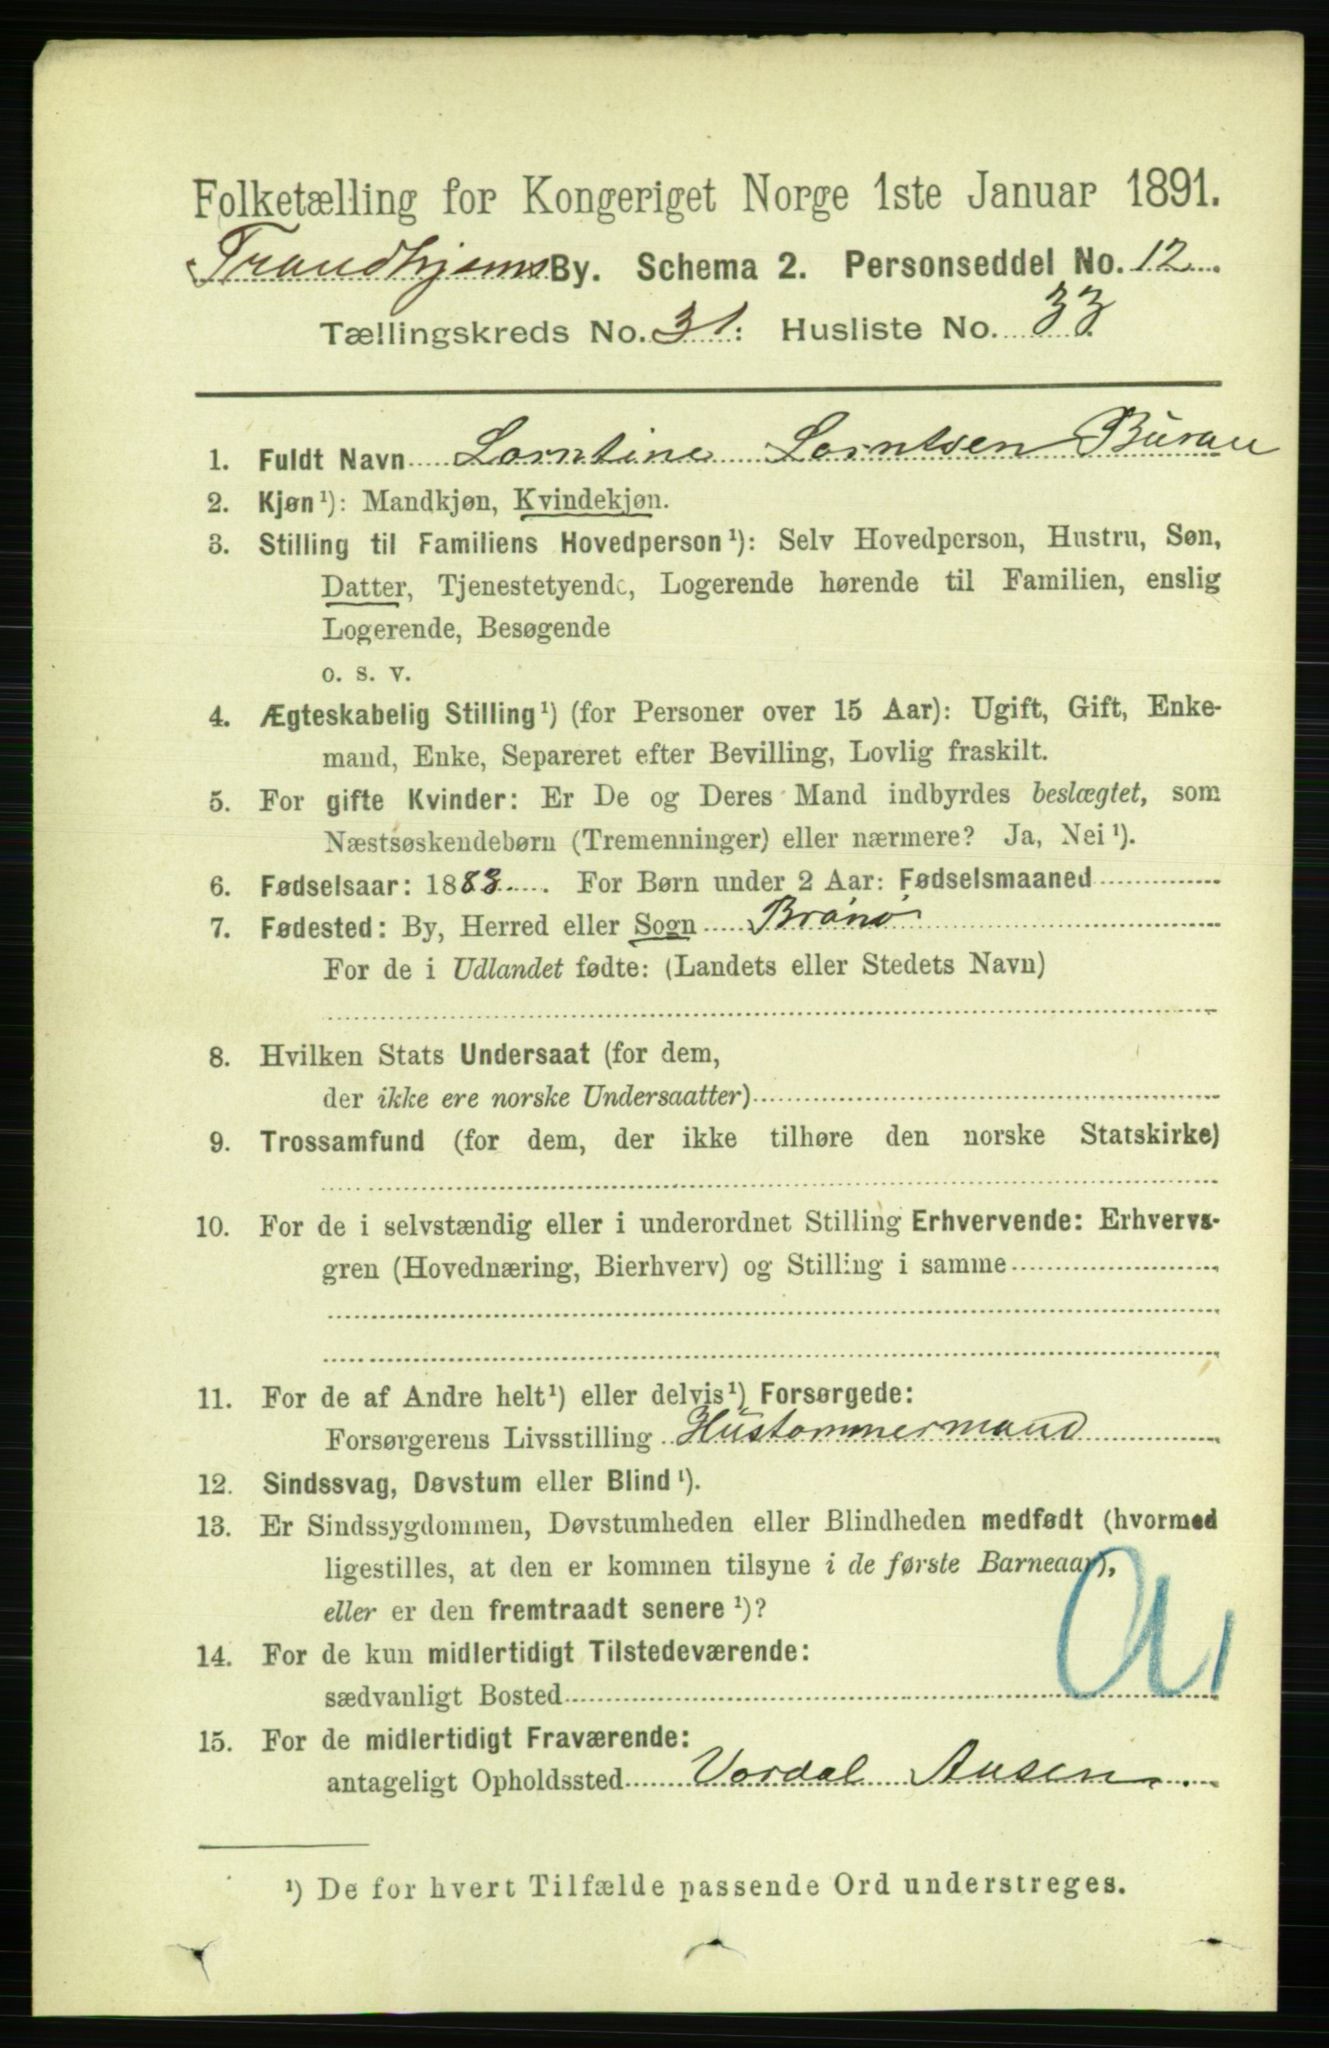 Folketælling for Kongeriget Norge 1ste Januar 1891.
Trondhjems By. Schema 2. Personseddel No. 12
Tællingskreds No. 31: Husliste No. 33
1. Fuldt Navn Lorntine Lorntsen Buran
2. Kjøn¹): Mandkjøn, Kvindekjøn.
3. Stilling til Familiens Hovedperson¹): Selv Hovedperson, Hustru, Søn,
Datter, Tjenestetyende, Logerende hørende til Familien, enslig
Logerende, Besøgende
o. s. v.
4. Ægteskabelig Stilling¹) (for Personer over 15 Aar): Ugift, Gift, Enke-
mand, Enke, Separeret efter Bevilling, Lovlig fraskilt.
5. For gifte Kvinder: Er De og Deres Mand indbyrdes beslægtet, som
Næstsøskendebørn (Tremenninger) eller nærmere? Ja, Nei¹).
6. Fødselsaar: 1883. For Børn under 2 Aar: Fødselsmaaned
7. Fødested: By, Herred eller Sogn Brønø
For de i Udlandet fødte: (Landets eller Stedets Navn)
8. Hvilken Stats Undersaat (for dem,
der ikke ere norske Undersaatter)
9. Trossamfund (for dem, der ikke tilhøre den norske Statskirke)
10. For de i selvstændig eller i underordnet Stilling Erhvervende: Erhvervs-
gren (Hovednæring, Bierhverv) og Stilling i samme
11. For de af Andre helt¹) eller delvis¹) Forsørgede:
Forsørgerens Livsstilling Hustømmermand
12. Sindssvag, Døvstum eller Blind¹).
13. Er Sindssygdommen, Døvstumheden eller Blindheden medfødt (hvormed
ligestilles, at den er kommen tilsyne i de første Barneaar),
eller er den fremtraadt senere¹)?
14. For de kun midlertidigt Tilstedeværende:
sædvanligt Bosted
15. For de midlertidigt Fraværende:
antageligt Opholdssted Vordal Ausen
¹) De for hvert Tilfælde passende Ord understreges.